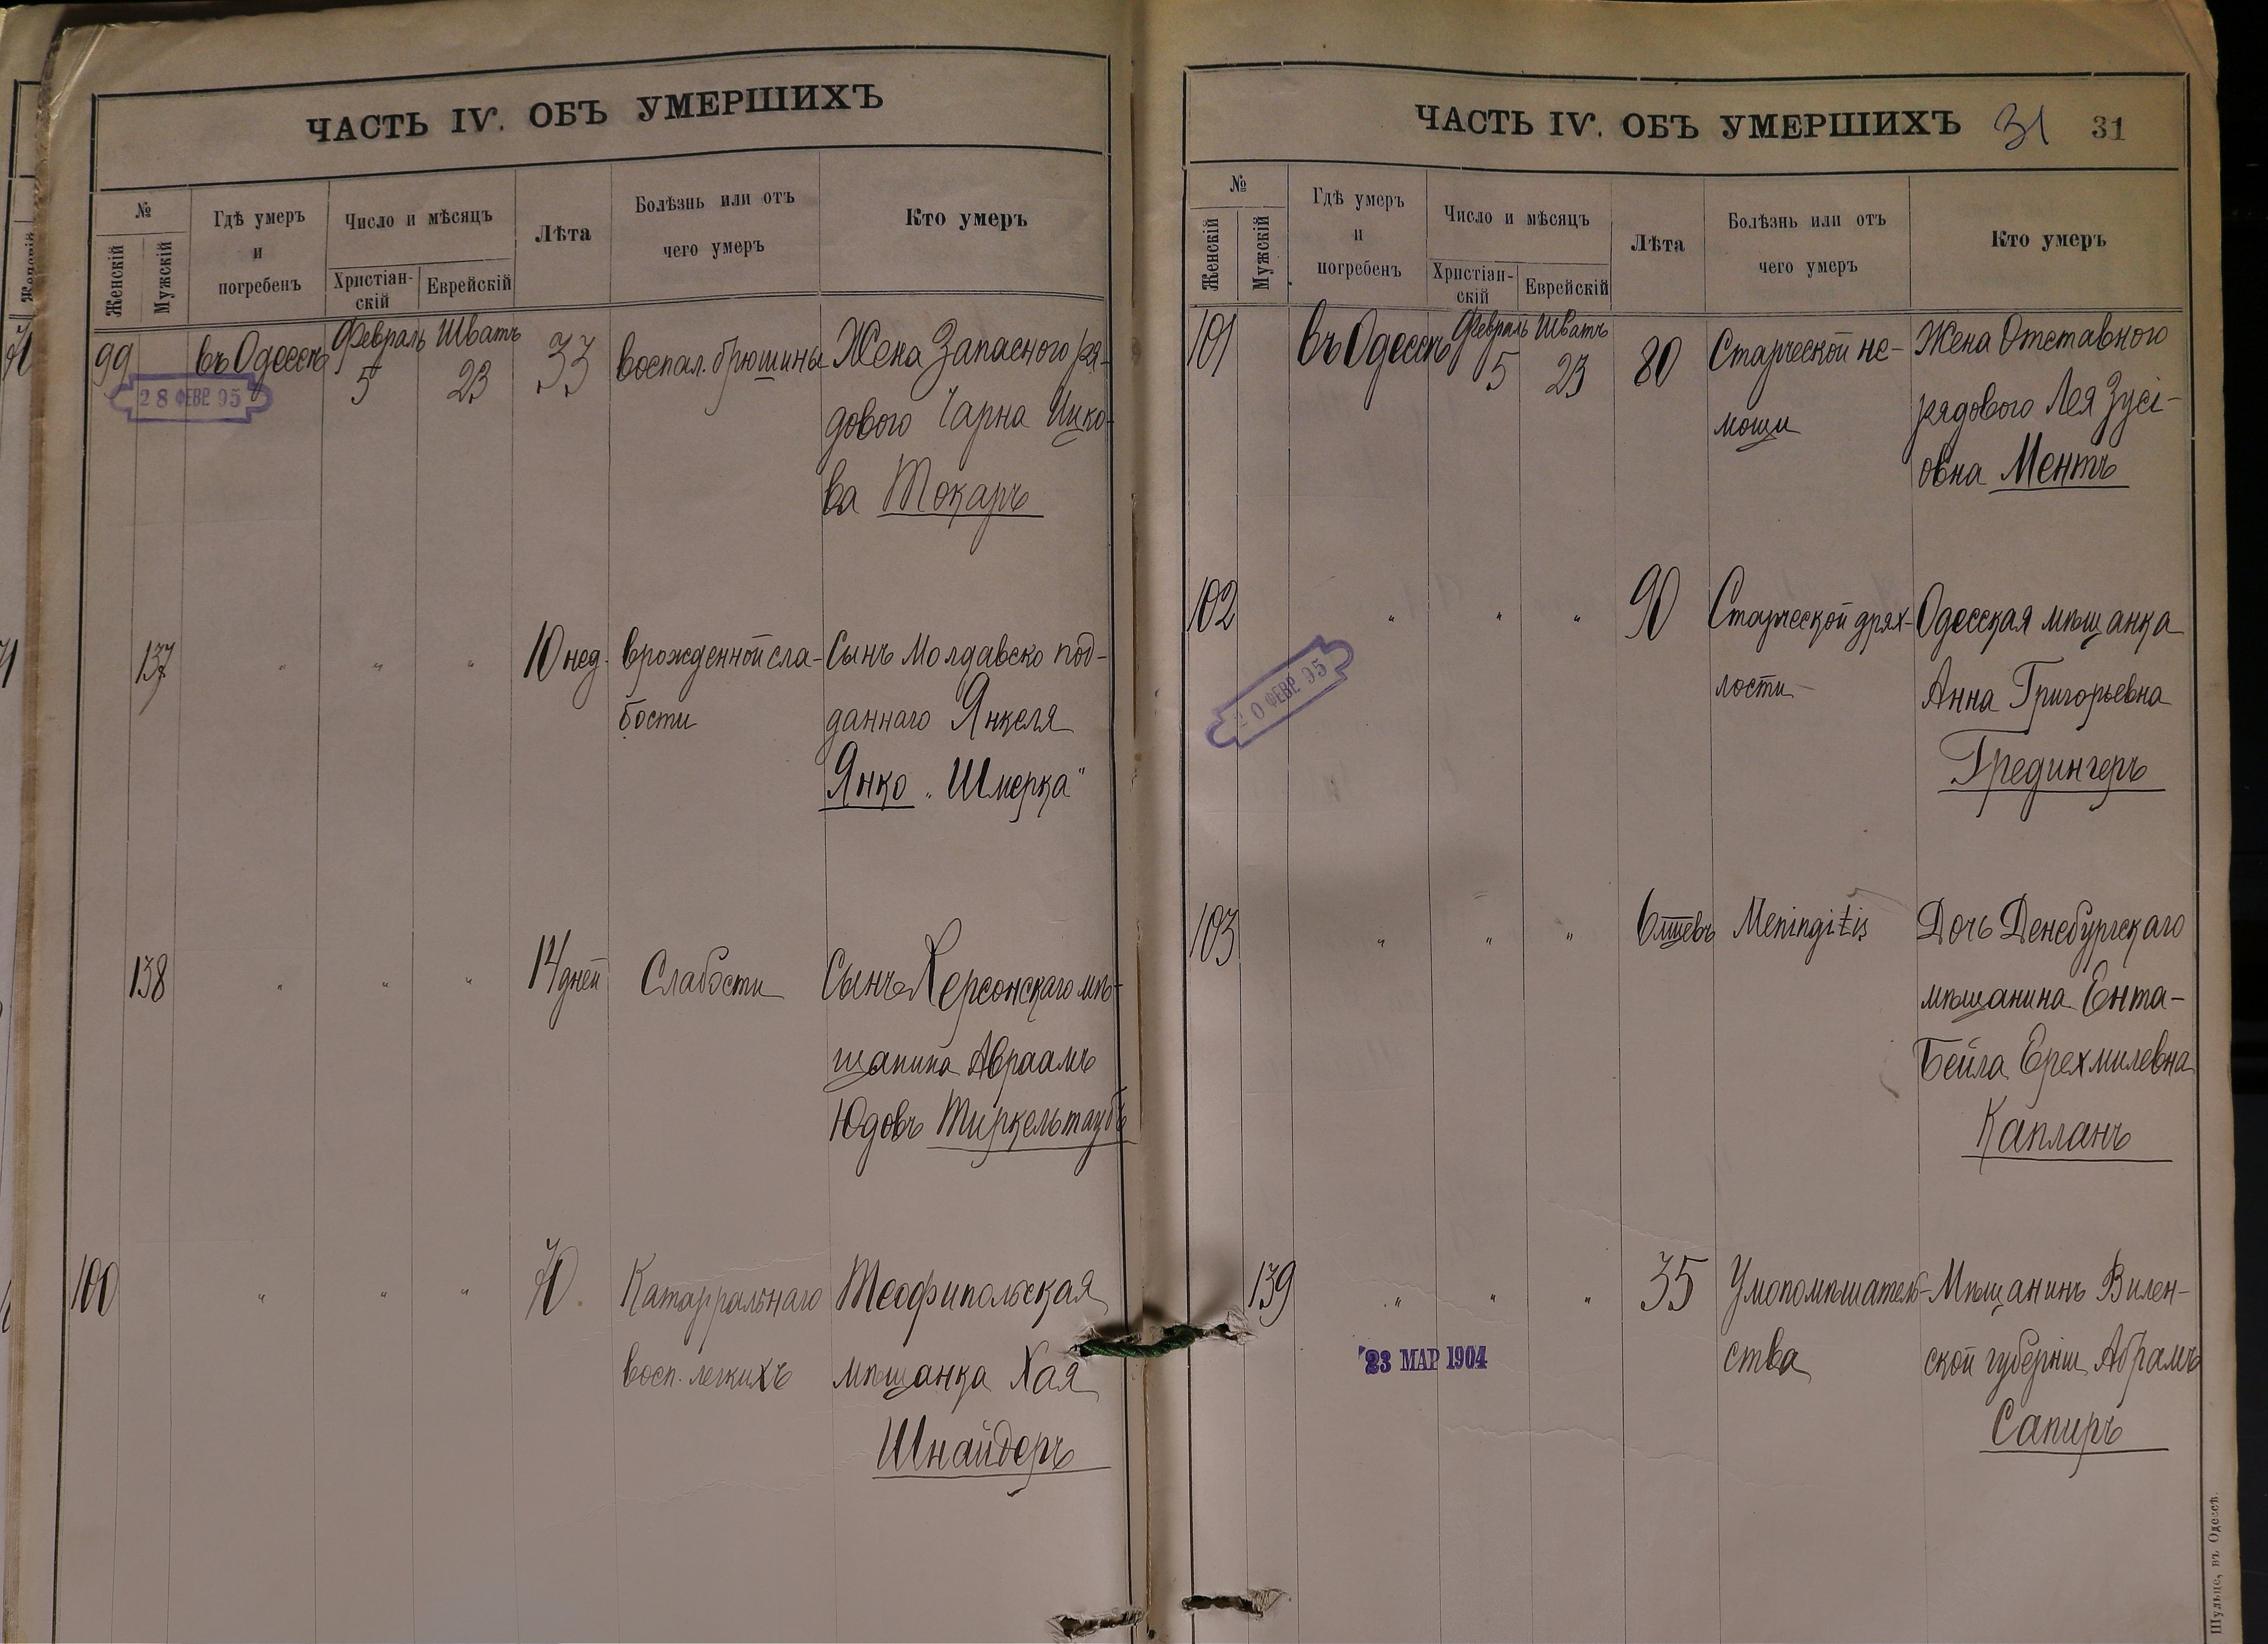 ЧАСТЬ IV. ОБЪ УМЕРШИХЪ
№
Женскій
Мужскій
Гдѣ умеръ
и
погребенъ
Число и мѣсяцъ
Христіан-
скій
Еврейскій
Лѣта
Болѣзнь или отъ
чего умеръ
Кто умеръ
99
въ Одессѣ
Февраль
5
Шватъ
23
33
воспал. брюшины
Жена Запасного ря-
дового Чарна Ицко-
ва Токаръ
28 ФЕВР. 95
137
" " "
10 нед.
врожденной сла-
бости
Сынъ Молдавско под-
даннаго Янкеля
Янко „Шмерка"
138
" " "
14 дней
Слабости
Сынъ Херсонскаго мѣ-
щанина Авраамъ
Юдовъ Тиркельтаубъ
100
" " "
70.
Катарральнаго
восп. легкихъ
Теофипольская
мѣщанка Хая
Шнайдеръ
ЧАСТЬ IV. ОБЪ УМЕРШИХЪ 31 31
№
Женскій
Мужскій
Гдѣ умеръ
и
погребенъ
Число и мѣсяцъ
Христіан-
скій
Еврейскій
Лѣта
Болѣзнь или отъ
чего умеръ
Кто умеръ
101
въ Одессѣ
Февраль
5
Шватъ
23
80
Старческой не-
мощи
Жена Отставного
рядового Лея Зусі-
овна Ментъ
102
" " "
90
Старческой дрях-
лости
Одесская мѣщанка
Анна Григорьевна
Гредингеръ
20 ФЕВР. 95
103
" " "
6 мцевъ
Meningitis
Дочь Денебургскаго
мѣщанина Ента-
Бейла Ерехмилевна
Капланъ
139
" " "
35
Умопомѣшатель-
ства
Мѣщанинъ Вилен-
ской губерніи Абрамъ
Сапиръ
23 МАР 1904
Шульце, въ Одессѣ.